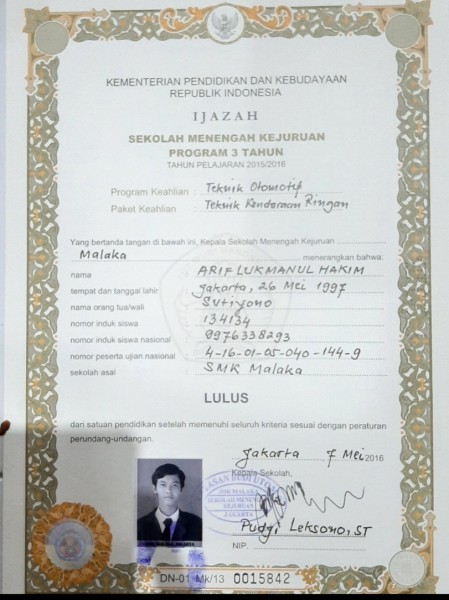 KEMENTERIAN PENDIDIKAN DAN KEBUDAYAAN
REPUBLIK INDONESIA
IJAZAH
SEKOLAH MENENGAH KEJURUAN
PROGRAM 3 TAHUN
TAHUN PELAJARAN 2015/2016
Program Keahlian : Teknik Otomotif
Paket Keahlian : Teknik Kendaraan Ringan
Yang bertanda tangan di bawah ini, Kepala Sekolah Menengah Kejuruan
Malaka menerangkan bahwa:
nama ARIF LUKMANUL HAKIM
tempat dan tanggal lahir Jakarta, 26 Mei 1997
nama orang tua/wali Sutiyono
nomor induk siswa 134134
nomor induk siswa nasional 9976338293
nomor peserta ujian nasional 4-16-01-05-040-144-9
sekolah asal SMK Malaka
LULUS
dari satuan pendidikan setelah memenuhi seluruh kriteria sesuai dengan peraturan
perundang-undangan.
Jakarta 7 Mei 2016
Kepala Sekolah,
YASAN BUDI UTOMO
SMK MALAKA
SEKOLAH MENENGAH
KEJURUAN
JAKARTA
Pudji Leksono, ST
NIP.
DN-01 Mk/13 0015842